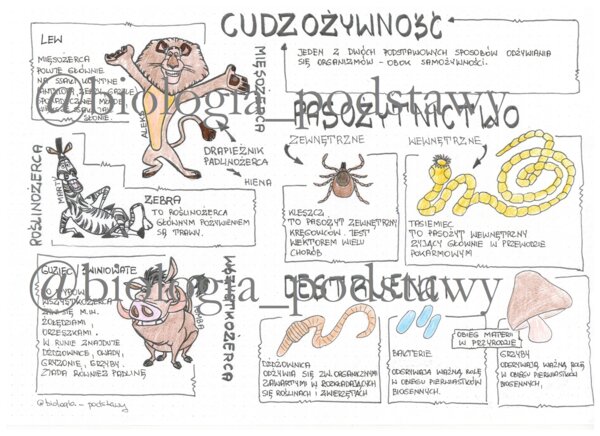 CUDZOŻYWNOŚĆ
JEDEN Z DWÓCH PODSTAWOWYCH SPOSOBÓW ODŻYWIANIA
SIĘ ORGANIZMÓW - OBOK SAMOŻYWNOŚCI.
LEW
MIĘSOŻERCA
POLUJE GŁÓWNIE
NA SSAKI KOPYTNE
SŁONIE.
ALEX
MIĘSOŻERCA
DRAPIEŻNIK
PADLINOŻERCA
HIENA
@biologia_podstawy
ROŚLINOŻERCA
MARTY
ZEBRA
TO ROŚLINOŻERCA
GŁÓWNYM POŻYWIENIEM
SĄ TRAWY.
PASOŻYTNICTWO
ZEWNĘTRZNE
WEWNĘTRZNE
KLESZCZ
TO PASOŻYT ZEWNĘTRZNY
KRĘGOWCÓW. JEST
WEKTOREM WIELU
CHORÓB
TASIEMIEC
TO PASOŻYT WEWNĘTRZNY
ŻYJĄCY GŁÓWNIE W PRZEWODZIE
POKARMOWYM
@biologia_podstawy
GUZIEC / ŚWINIOWATE
WSZYSTKOŻERCA
ŻYWI SIĘ M.IN.
ŻOŁĘDZIAMI,
ORZESZKAMI.
W RUNIE ZNAJDUJE
DŻDŻOWNICE, OWADY,
GRYZONIE, GRZYBY.
ZJADA RÓWNIEŻ PADLINĘ
PUMBA
WSZYSTKOŻERCA
DESTRUENCI
DŻDŻOWNICA
ODŻYWIA SIĘ ZW. ORGANICZNYMI
ZAWARTYMI W ROZKŁADAJĄCYCH
SIĘ ROŚLINACH I ZWIERZĘTACH
BAKTERIE
ODGRYWAJĄ WAŻNĄ ROLĘ
W OBIEGU PIERWIASTKÓW
BIOGENNYCH.
OBIEG MATERII
W PRZYRODZIE
GRZYBY
ODGRYWAJĄ WAŻNĄ ROLĘ
W OBIEGU PIERWIASTKÓW
BIOGENNYCH,
@biologia_podstawy